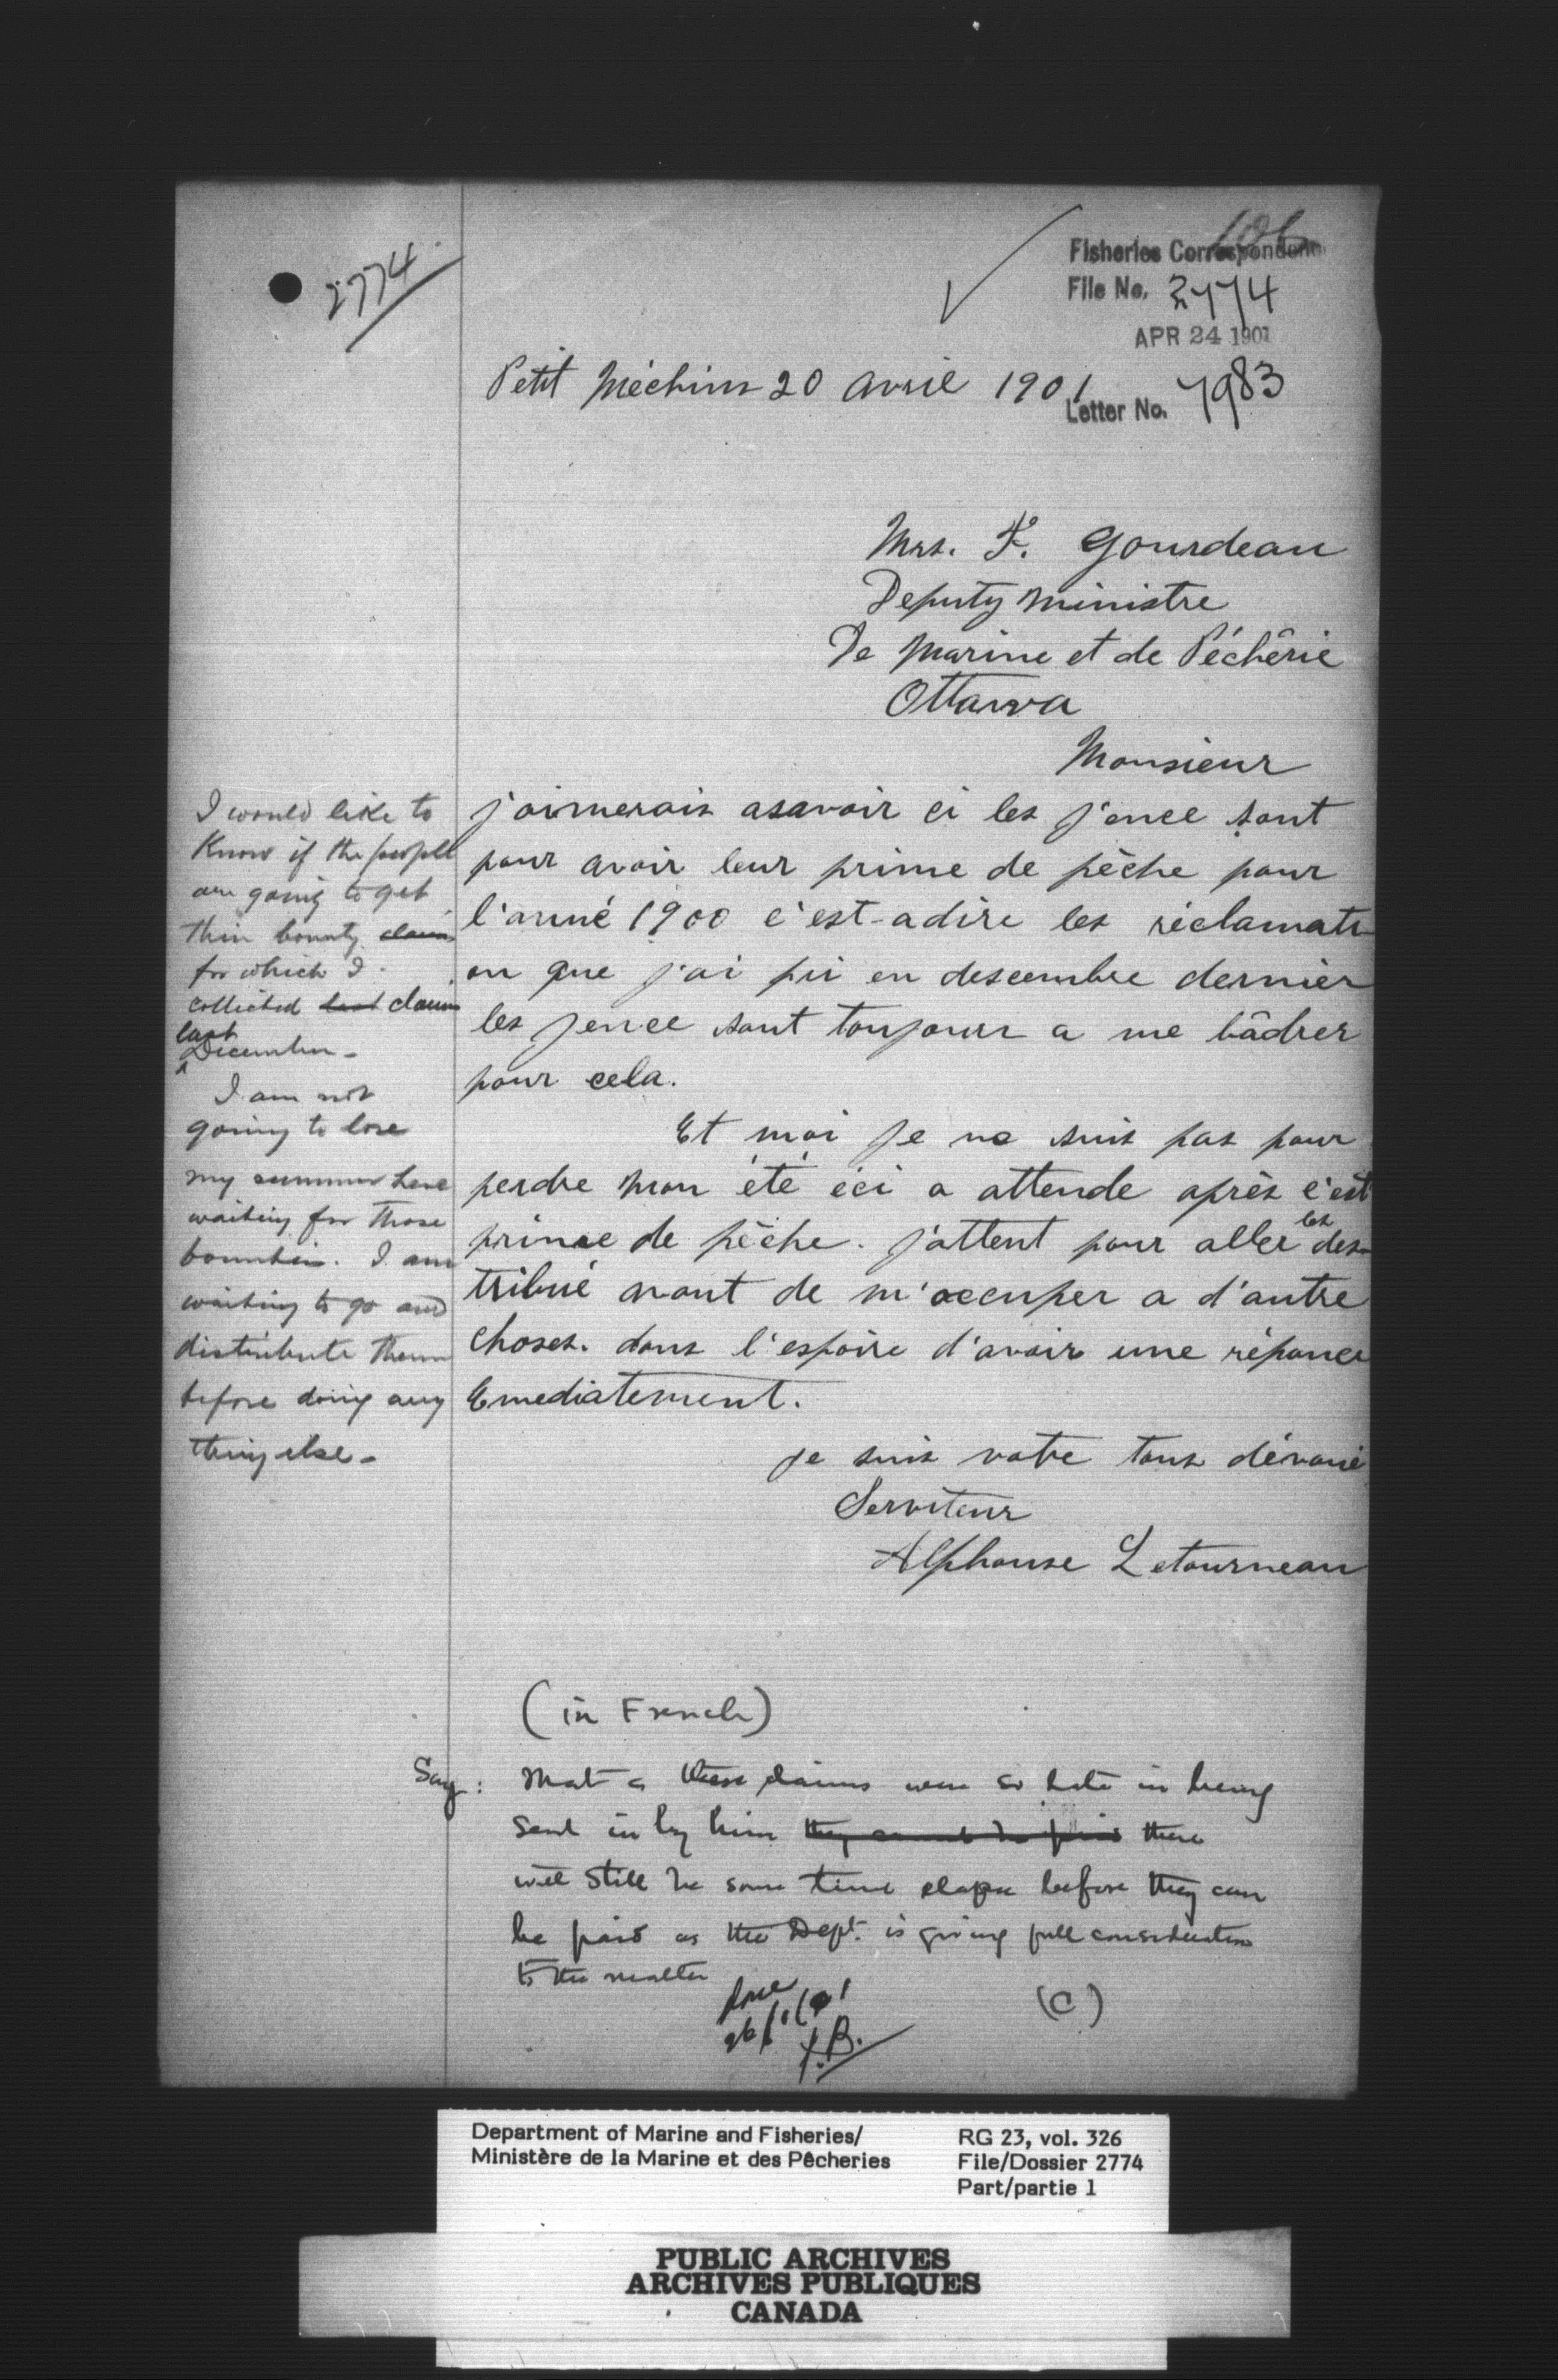 2774
106
Fisheries Correspondence
File No. 2774
APR 24 1901
Letter No. 7983
Petit Méchins 20 avril 1901
Mrs. F. Gourdeau
Deputy Ministre
De Marine et de Péchêrie
Ottawa
Monsieur
j'aimerais asavoir ci les j'ence sont
pour avoir leur prime de pèche pour
l'anné 1900 c'est-adire les réclamati
on que j'ai pri en descembre dernier
les jence sont toujours a me bâdrer
pour cela.
Et moi je ne suis pas pour
perdre mon été ici a attende après c'est
prime de pèche. j'attent pour aller les des
tribué avant de m'occuper a d'autre
choses. dans l'espoire d'avoir une réponce
Emediatement.
je suis votre tous dévoué
Serviteur
Alphonse Letourneau
I would like to
Know if the people
are going to get
their bounty claims
for which I
collected last claims
last
December -
I am not
going to lose
my summer here
waiting for those
bounties. I am
waiting to go and
distribute them
before doing any
thing else -
(in French)
Say: That as these claims were so late in being
sent in by him they cannot be paid there
will still be some time elapse before they can
be paid as the Dept. is giving full consideration
to the matter
done
(C)
Department of Marine and Fisheries/
Ministère de la Marine et des Pêcheries
RG 23, vol. 326
File/Dossier 2774
Part/partie 1
PUBLIC ARCHIVES
ARCHIVES PUBLIQUES
CANADA